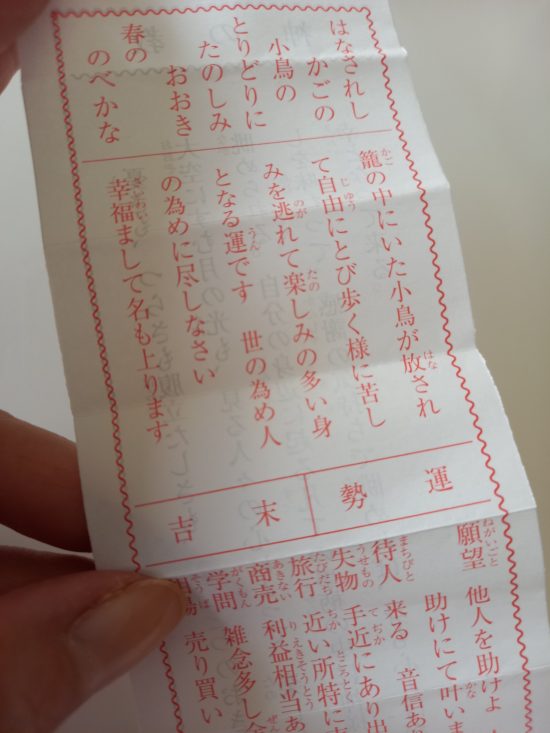 はなされし
かごの
小鳥の
とりどりに
たのしみ
おおき
春の
のべかな
籠の中にいた小鳥が放され
て自由にとび歩く様に苦し
みを逃れて楽しみの多い身
となる運です 世の為め人
の為めに尽しなさい
幸福まして名も上ります
運勢
末吉
願望 他人を助けよ
助けにて叶いま
待人 来る 音信あ
失物 手近にあり出
旅行 近い所特に
商売 利益相当あ
学問 雑念多し全
相場 売り買い